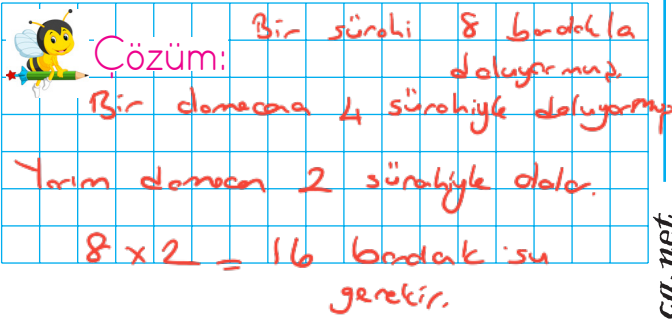 Çözüm:
Bir sürahi 8 bardakla
doluyormuş.
Bir damacana 4 sürahiyle doluyormuş
Yarım damacan 2 sürahiyle dolar.
8 x 2 = 16 bardak su
gerekir.
ca.net